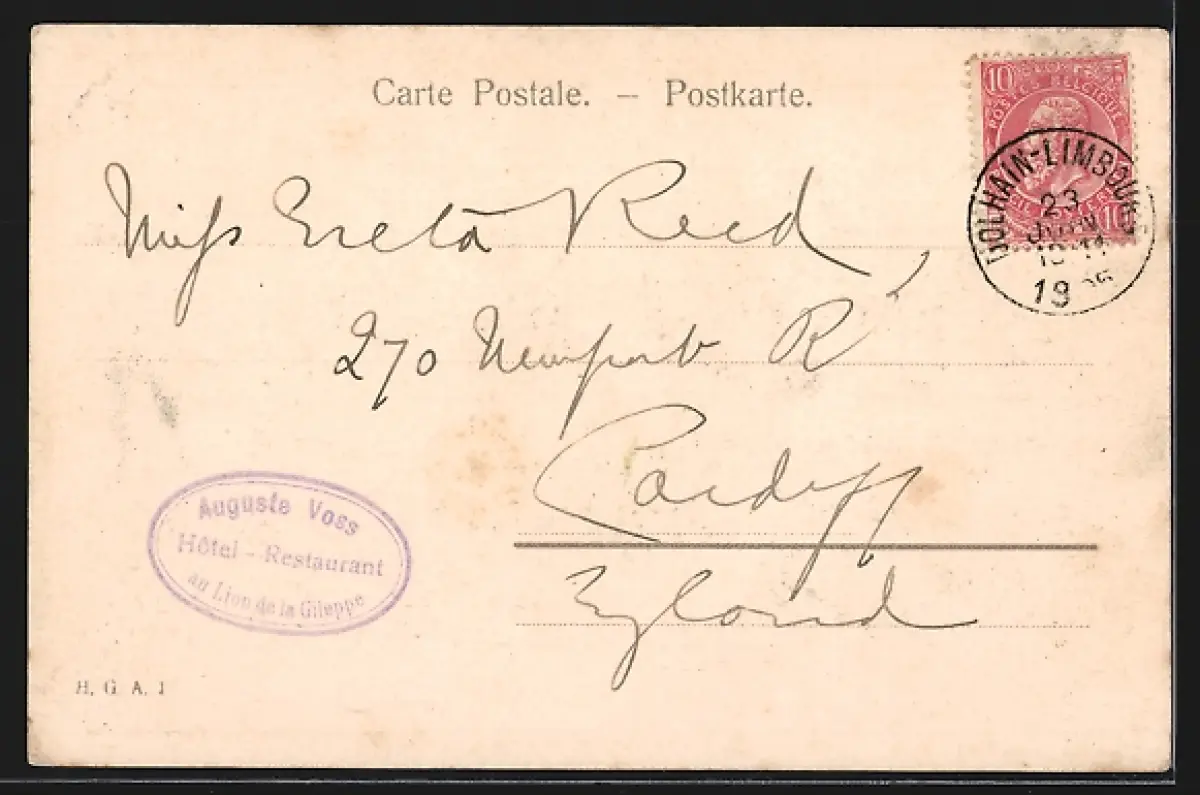 Carte Postale. — Postkarte.
10 10
POSTES BELGIQUE
DOLHAIN-LIMBOURG
23
JUIN
19
10
Miss Reed,
270 Newport Rd
Cardiff
England
Auguste Voss
Hôtel - Restaurant
au Lion de la Gileppe
H. G. A. J